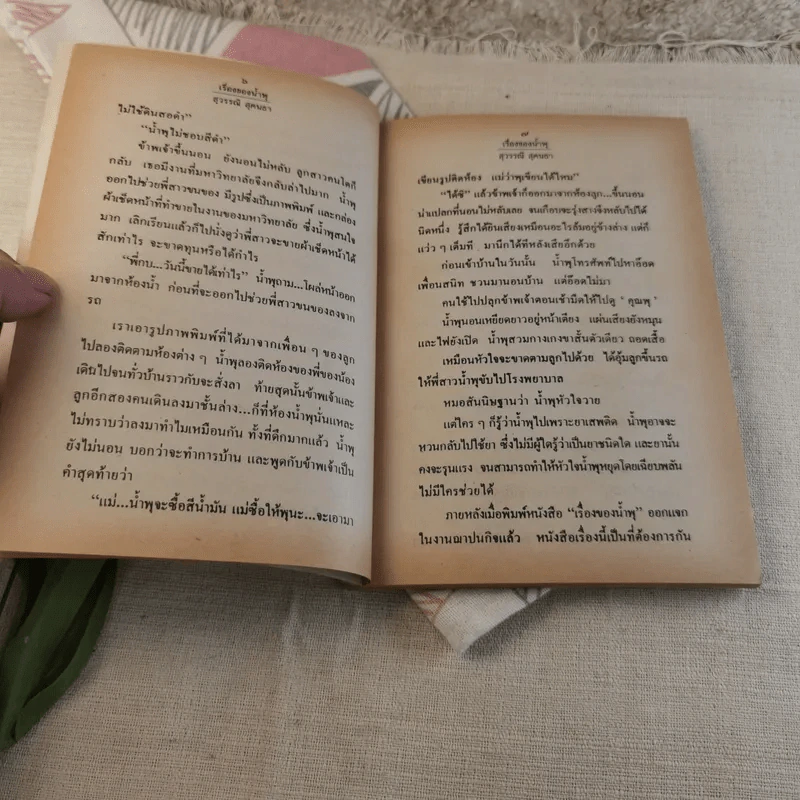 ๖
เรื่องของน้ำพุ
สุวรรณี สุคนธา
ไม่ใช้ดินสอดำ”
“น้ำพุไม่ชอบสีดำ”
ข้าพเจ้าขึ้นนอน ยังนอนไม่หลับ ลูกสาวคนโตก็
กลับ เธอมีงานที่มหาวิทยาลัยจึงกลับล่าไปมาก น้ำพุ
ออกไปช่วยพี่สาวขนของ มีรูปซึ่งเป็นภาพพิมพ์ และกล่อง
ผ้าเช็ดหน้าที่ทำขายในงานของมหาวิทยาลัย ซึ่งน้ำพุสนใจ
มาก เลิกเรียนแล้วก็ไปนั่งดูว่าพี่สาวจะขายผ้าเช็ดหน้าได้
สักเท่าไร จะขาดทุนหรือได้กำไร
“พี่กบ...วันนี้ขายได้เท่าไร” น้ำพุถาม...โผล่หน้าออก
มาจากห้องน้ำ ก่อนที่จะออกไปช่วยพี่สาวขนของลงจาก
รถ
เราเอารูปภาพพิมพ์ที่ได้มาจากเพื่อน ๆ ของลูก
ไปลองติดตามห้องต่าง ๆ น้ำพุลองติดห้องของพี่ของน้อง
เดินไปจนทั่วบ้านราวกับจะสั่งลา ท้ายสุดนั้นข้าพเจ้าและ
ลูกอีกสองคนเดินลงมาชั้นล่าง...ก็ที่ห้องน้ำพุนั่นแหละ
ไม่ทราบว่าลงมาทำไมเหมือนกัน ทั้งที่ดึกมากแล้ว น้ำพุ
ยังไม่นอน บอกว่าจะทำการบ้าน และพูดกับข้าพเจ้าเป็น
คำสุดท้ายว่า
“แม่...น้ำพุจะซื้อสีน้ำมัน แม่ซื้อให้พุนะ...จะเอามา
๗
เรื่องของน้ำพุ
สุวรรณี สุคนธา
เขียนรูปติดห้อง แม่ว่าพุเขียนได้ไหม”
“ได้ซี” แล้วข้าพเจ้าก็ออกมาจากห้องลูก...ขึ้นนอน
น่าแปลกที่นอนไม่หลับเลย จนเกือบจะรุ่งสางจึงหลับไปได้
นิดหนึ่ง รู้สึกได้ยินเสียงเหมือนอะไรล้มอยู่ข้างล่าง แต่ก็
แว่ว ๆ เต็มที มานึกได้ทีหลังเสียอีกด้วย
ก่อนเข้าบ้านในวันนั้น น้ำพุโทรศัพท์ไปหาอ๊อด
เพื่อนสนิท ชวนมานอนบ้าน แต่อ๊อดไม่มา
คนใช้ไปปลุกข้าพเจ้าตอนเช้ามืดให้ไปดู “คุณพุ”
น้ำพุนอนเหยียดยาวอยู่หน้าเตียง แผ่นเสียงยังหมุน
และไฟยังเปิด น้ำพุสวมกางเกงขาสั้นตัวเดียว ถอดเสื้อ
เหมือนหัวใจจะขาดตามลูกไปด้วย ได้อุ้มลูกขึ้นรถ
ให้พี่สาวน้ำพุขับไปโรงพยาบาล
หมอสันนิษฐานว่า น้ำพุหัวใจวาย
แต่ใคร ๆ ก็รู้ว่าน้ำพุไปเพราะยาเสพติด น้ำพุอาจจะ
หวนกลับไปใช้ยา ซึ่งไม่มีผู้ใดรู้ว่าเป็นยาชนิดใด และยานั้น
คงจะรุนแรง จนสามารถทำให้หัวใจน้ำพุหยุดโดยเฉียบพลัน
ไม่มีใครช่วยได้
ภายหลังเมื่อพิมพ์หนังสือ “เรื่องของน้ำพุ” ออกแจก
ในงานฌาปนกิจแล้ว หนังสือเรื่องนี้เป็นที่ต้องการกัน